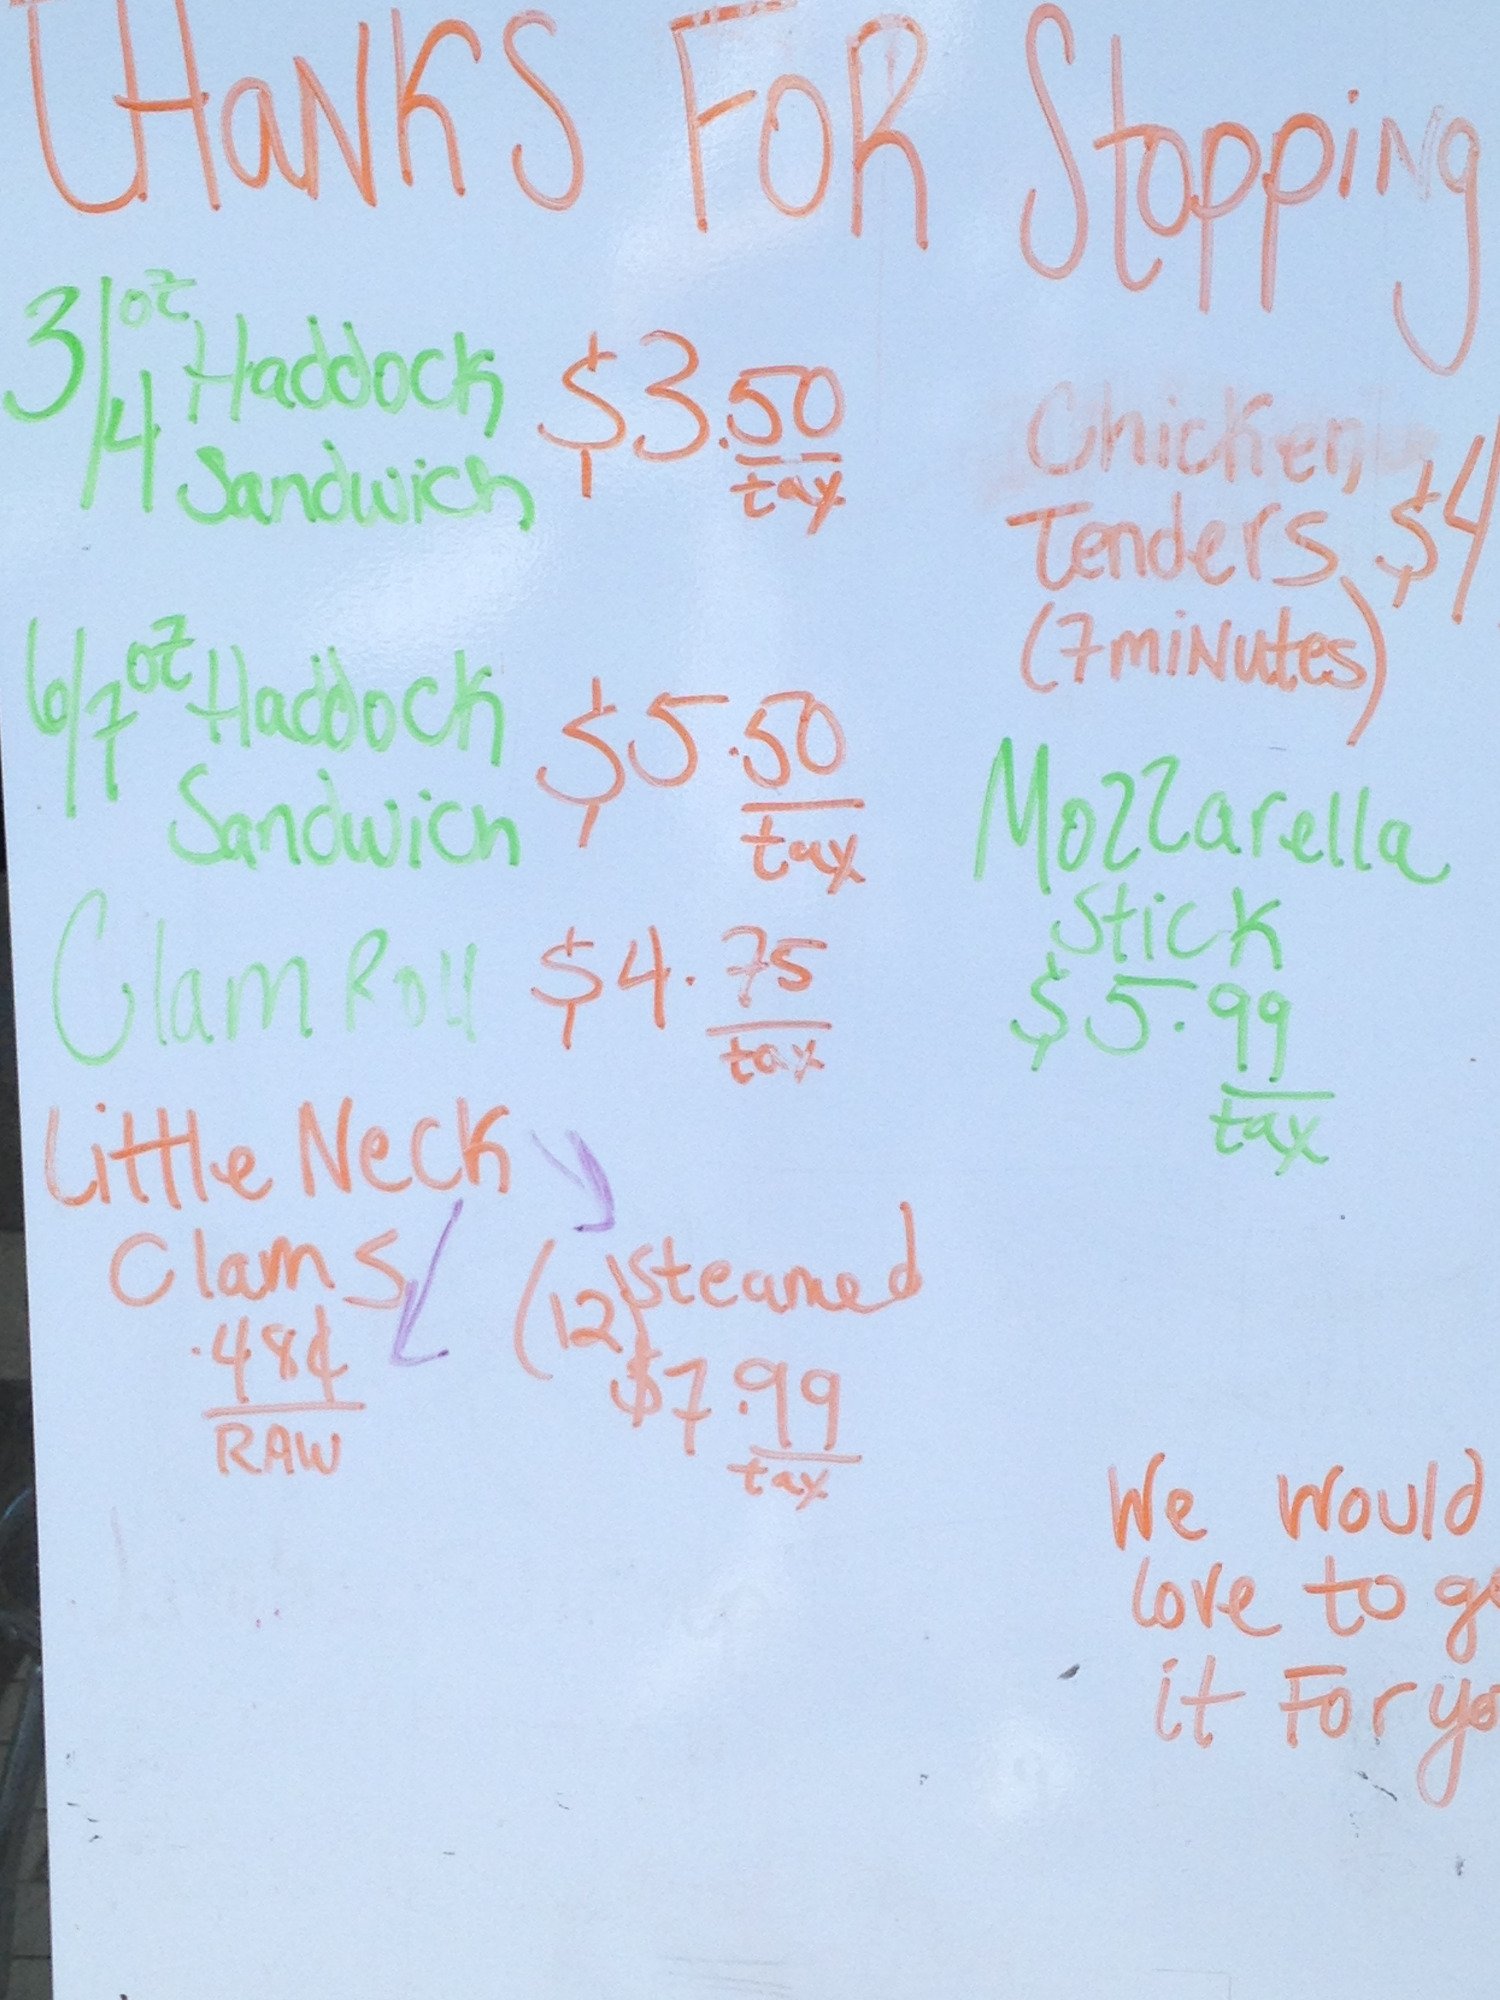 THanKS FOR Stopping
3/4 oz Haddock $3.50
Sandwich tax
6/7 oz Haddock $5.50
Sandwich tax
Clam Roll $4.75
tax
Little Neck
Clams
.48¢
RAW
(12) Steamed
$7.99
tax
Chicken
Tenders $4
(7 miNutes)
Mozzarella
Stick
$5.99
tax
We would
love to
it For